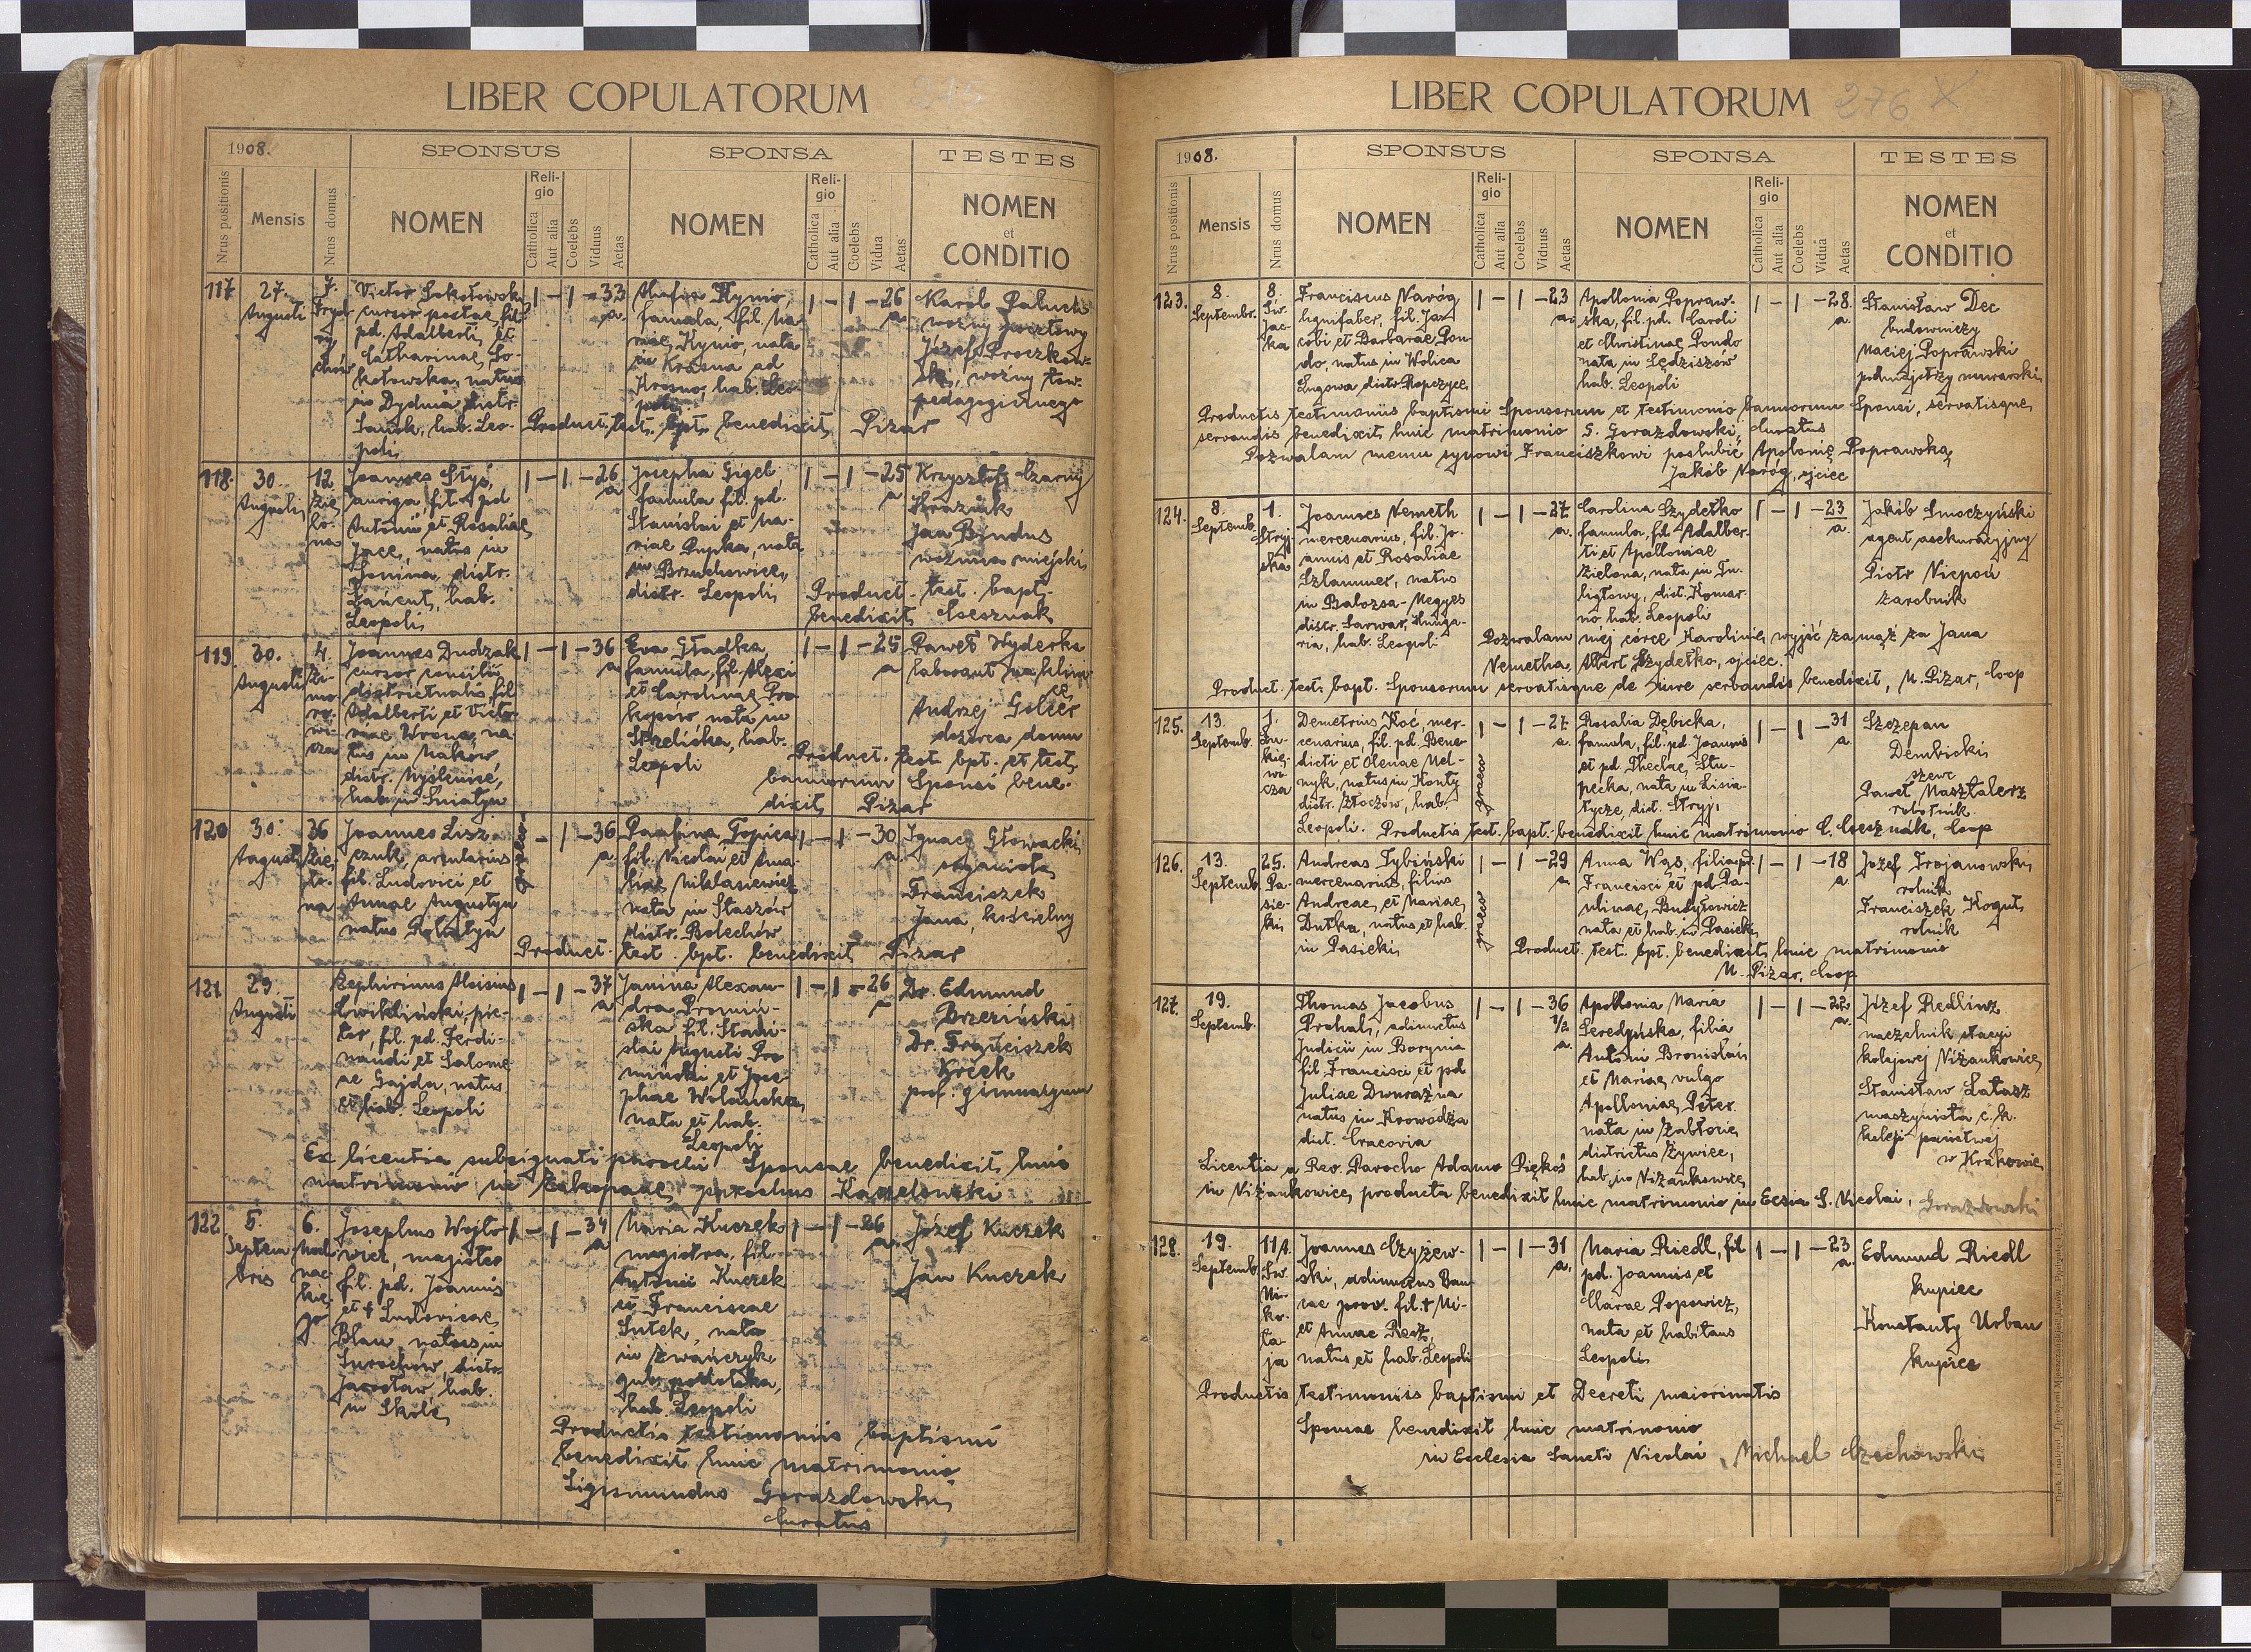 LIBER COPULATORUM
1908.
SPONSUS
SPONSA
TESTES
Nrus positionis
Mensis
Nrus domus
NOMEN
Religio
Catholica
Aut alia
Coelebs
Viduus
Aetas
NOMEN
Religio
Catholica
Aut alia
Coelebs
Vidua
Aetas
NOMEN
et
CONDITIO
117
27.
Augusti
7.
Victor Sokołowski
cursor postae, fil.
pd. Adalberti et
Catharinae So-
kołowska, natus
in Dydnia distr.
Sanok, hab. Leo-
poli
1 - 1 - 33
a.
Kynio,
famula, fil. Ma-
riae Kynio, nata
in Krasna ad
Krosno, hab. Leo-
poli
1 - 1 - 26
a
Karol Paluch
woźny pocztowy
Józef Proczkow-
ski, woźny tow.
pedagogicznego
Product. test. bpt. benedixit Pizar
118.
30.
Augusti
12
Zie-
lo-
na
Joannes Styś,
auriga, fil. pd
Antonii et Rosaliae
natus in
Sonina, distr.
Łańcut, hab.
Leopoli
1 - 1 - 26
a
Josepha Gigel
famula fil. pd.
Stanislai et Ma-
riae Pupka, nata
in Brzuchowice,
distr. Leopoli
1 - 1 - 25
a
Krzysztof Czarny
Strażnik
Jan Bindus
woźnica miejski
Product. test. bapt.
benedixit Czesznak
119.
30.
Augusti
4.
Zi-
mo-
ro-
wi-
cza
Joannes Dudzak
cursor consilii
districtualis, fil.
Adalberti et Victo-
riae Wrona, na
tus in Maków,
distr. Myślenice,
hab. in Śniatyn
1 - 1 - 36
a
Eva Gładka,
famula, fil. Alexi
et Carolinae Pro
kopów, nata in
Strzeliska, hab.
Leopoli
1 - 1 - 25
a
Paweł Wyderka
laborant na klini-
ce
Andrzej Golcer
dozorca domu
Product. test. bpt. et test.
bannorum Sponsi bene-
dixit Pizar
120
30.
Augusti
36
Zie-
lo-
na
Joannes Lisz-
czuk, arcularius
fil. Ludovici et
Annae Augustyn
natus Rohatyn
- 1 - 36
a
Paulina Topica
fil. Nicolai et Ama-
liae Niklasiewicz
nata in Staszów
distr. Bolechów
1 - 1 - 30
a
Ignacy Głowacki
Franciszek
Jana, kościelny
Product. test. bpt. benedixit Pizar
121
29.
Augusti
Zephirinus Aloisius
Ćwikliński, pic-
tor, fil. pd. Ferdi-
nandi et Salome-
ae Gajda, natus
et hab. Leopoli
1 - 1 - 37
a
Janina Alexan-
dra Promiń-
ska fil. Stani-
slai Augusti Pro
miński et Jose-
phae Wolańska,
nata et hab.
Leopoli
1 - 1 - 26
Dr. Edmund
Brzeziński
Dr. Franciszek
Krček
prof. gimnazyum
Ex licentia subsignati parochi Sponsae benedixit huic
matrimonio in Zakopane, parochus Kaszelewski
122
5.
Septem
bris
6.
Moch
nac-
kie-
go
Josephus Wojto-
wicz, magister
fil. pd. Joannis
et Ludovicae
Blau, natus in
Surochów, distr.
Jarosław, hab.
in Skole
1 - 1 - 34
a
Maria Kuczek
magistra, fil.
Antonii Kuczek
et Franciscae
Sutek, nata
in Zwańczyk
gub. podolska,
hab. Leopoli
1 - 1 - 26
a
Józef Kuczek
Jan Kuczek
Productis testimoniis baptismi
benedixit huic matrimonio
Sigismundus Gorazdowski
Curatus
LIBER COPULATORUM 276 X
1908.
SPONSUS
SPONSA
TESTES
Nrus positionis
Mensis
Nrus domus
NOMEN
Religio
Catholica
Aut alia
Coelebs
Viduus
Aetas
NOMEN
Religio
Catholica
Aut alia
Coelebs
Vidua
Aetas
NOMEN
et
CONDITIO
123.
8.
Septembr.
8.
Św.
Jac-
ka
Franciscus Naróg
lignifaber, fil. Ja-
cobi et Barbarae Pon
do, natus in Wolica
Ługowa distr. Ropczyce
1 - 1 - 23
a.
Apollonia Popraw-
ska, fil. pd. Caroli
et Christinae Pondo
nata in Sędziszów
hab. Leopoli
1 - 1 - 28.
a.
Stanisław Dec
budowniczy
Maciej Poprawski
podmajstrzy murarski
Productis testimoniis baptismi Sponsorum et testimonio bannorum Sponsi, servatisque
servandis benedixit huic matrimonio S. Gorazdowski, Curatus
Pozwalam memu synowi Franciszkowi poślubić Apolonię Poprawską
Jakób Naróg, ojciec
124.
8.
Septemb.
1.
Stryj-
ska
Joannes Nemeth
mercenarius, fil. Jo-
annis et Rosaliae
Szlammer, natus
in Balozsa-Megyes
distr. Sarwar, Hunga-
ria, hab. Leopoli
1 - 1 - 27
a.
Carolina Szydełko
famula, fil. Adalber-
ti et Apolloniae
Zielona, nata in Tu-
ligłowy, dist. Komar-
no hab. Leopoli
1 - 1 - 23
a.
Jakób Smoczyński
agent asekuracyjny
Piotr Niepoń
zarobnik
Pozwalam mej córce Karolinie wyjść za mąż za Jana
Nemetha, Albert Szydełko, ojciec.
Product. test. bapt. Sponsorum servatisque de Jure servandis benedixit, M. Pizar, Coop
125.
13.
Septemb.
1.
Łu-
kie-
wi-
cza
Demetrius Koć, mer-
cenarius, fil. pd. Bene-
dicti et Olenae Mel-
nyk, natus in Konty
distr. Złoczów, hab.
Leopoli.
graeco
1 - 1 - 27
a.
Rosalia Dębicka,
famula, fil. pd. Joannis
et pd. Theclae Stu-
pecka, nata in Lisia-
tycze, dist. Stryj
1 - 1 - 31
a.
Szczepan
Dembicki
szewc
Paweł Masztalerz
robotnik.
Productis test. bapt. benedixit huic matrimonio C. Czesznak, Coop
126.
13.
Septemb.
25.
Pa-
sie-
ki
Andreas Tybiński
mercenarius, filius
Andreae et Mariae
Dutka, natus et hab.
in Pasieki
graeco
1 - 1 - 29
a.
Anna Wąs, filia pd.
Francisci et pd. Pa-
ulinae Budyłowicz
nata et hab. in Pasieki
1 - 1 - 18
a.
Józef Trojanowski
rolnik
Franciszek Kogut
rolnik
Product. test. bpt. benedixit huic matrimonio
M. Pizar, Coop.
127.
19.
Septemb.
Thomas Jacobus
Prohal, adiunctus
Judicii in Borynia
fil. Francisci et pd
Juliae Dwurażna
natus in Krowodża
dist. Cracovia
1 - 1 - 36
1/2
a.
Apollonia Maria
Seredyńska, filia
Antoni Bronislai
et Mariae vulgo
Apolloniae Peter.
nata in Zabłocie
districtus Żywiec,
hab. in Niżankowice
1 - 1 - 22
a.
Józef Redlinz
naczelnik stacyi
kolejowej Niżankowice
Stanisław Łatasz
maszynista c. k.
kolej państwej
w Krakowie
Licentia a Rev. Parocho Adamo Piękoś
in Niżankowice producta benedixit huic matrimonio in Ecsia S. Nicolai. Gorazdowski
128.
19.
Septemb.
11A.
Św.
Mi-
ko-
ła-
ja
Joannes Czyżew-
ski, adiunctus Ban-
cae prov. fil. † Mi-
et Annae Resz,
natus et hab. Leopoli
1 - 1 - 31
a.
Maria Riedl, fil
pd. Joannis et
Clarae Popowicz,
nata et habitans
Leopoli
1 - 1 - 23
a.
Edmund Riedl
kupiec
Konstanty Urban
kupiec
Productis testimoniis baptismi et Decreti maiorinatis
Sponsae benedixit huic matrimonio
in Ecclesia Sancti Nicolai, Michael Czechowski